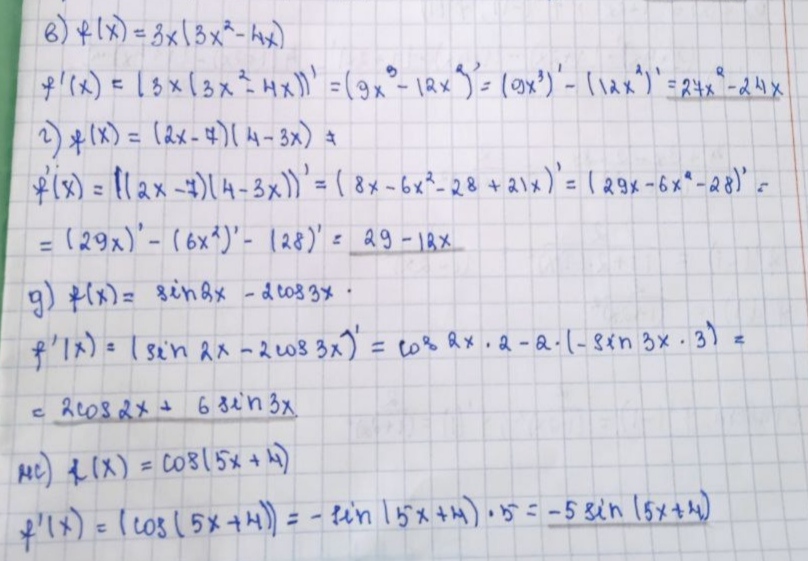 в) f(x) = 3x(3x² - 4x)
f'(x) = (3x(3x² - 4x))' = (9x³ - 12x²)' = (9x³)' - (12x²)' = 27x² - 24x
г) f(x) = (2x - 7)(4 - 3x) =
f'(x) = ((2x - 7)(4 - 3x))' = (8x - 6x² - 28 + 21x)' = (29x - 6x² - 28)' =
= (29x)' - (6x²)' - (28)' = 29 - 12x
д) f(x) = sin2x - 2cos3x .
f'(x) = (sin 2x - 2cos 3x)' = cos 2x · 2 - 2 · (- sin 3x · 3) =
= 2cos2x + 6 sin3x
ж) f(x) = cos(5x + 4)
f'(x) = (cos(5x + 4)) = - sin(5x + 4) · 5 = -5 sin(5x + 4)